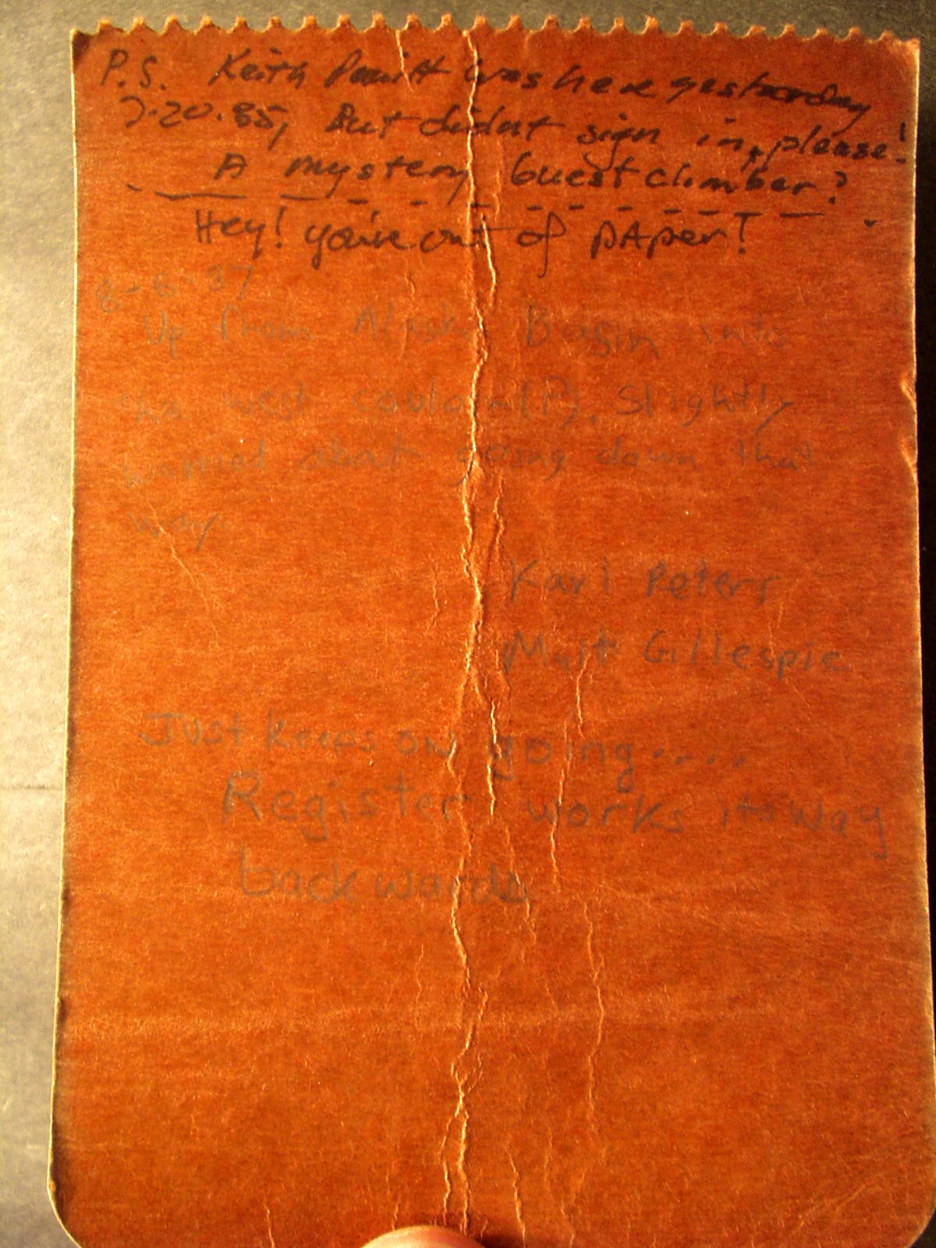 P.S. Keith was here yesterday
7.20.85, But didnt sign in, please!
A mystery Guest climber?
Hey! you're out of pAper!
8-6-87
Up from Alaska Basin into
the west couloir(?). Slightly
worried about going down that
way
Karl Peters
Matt Gillespie
Just keeps on going....
Register works its way
backwards